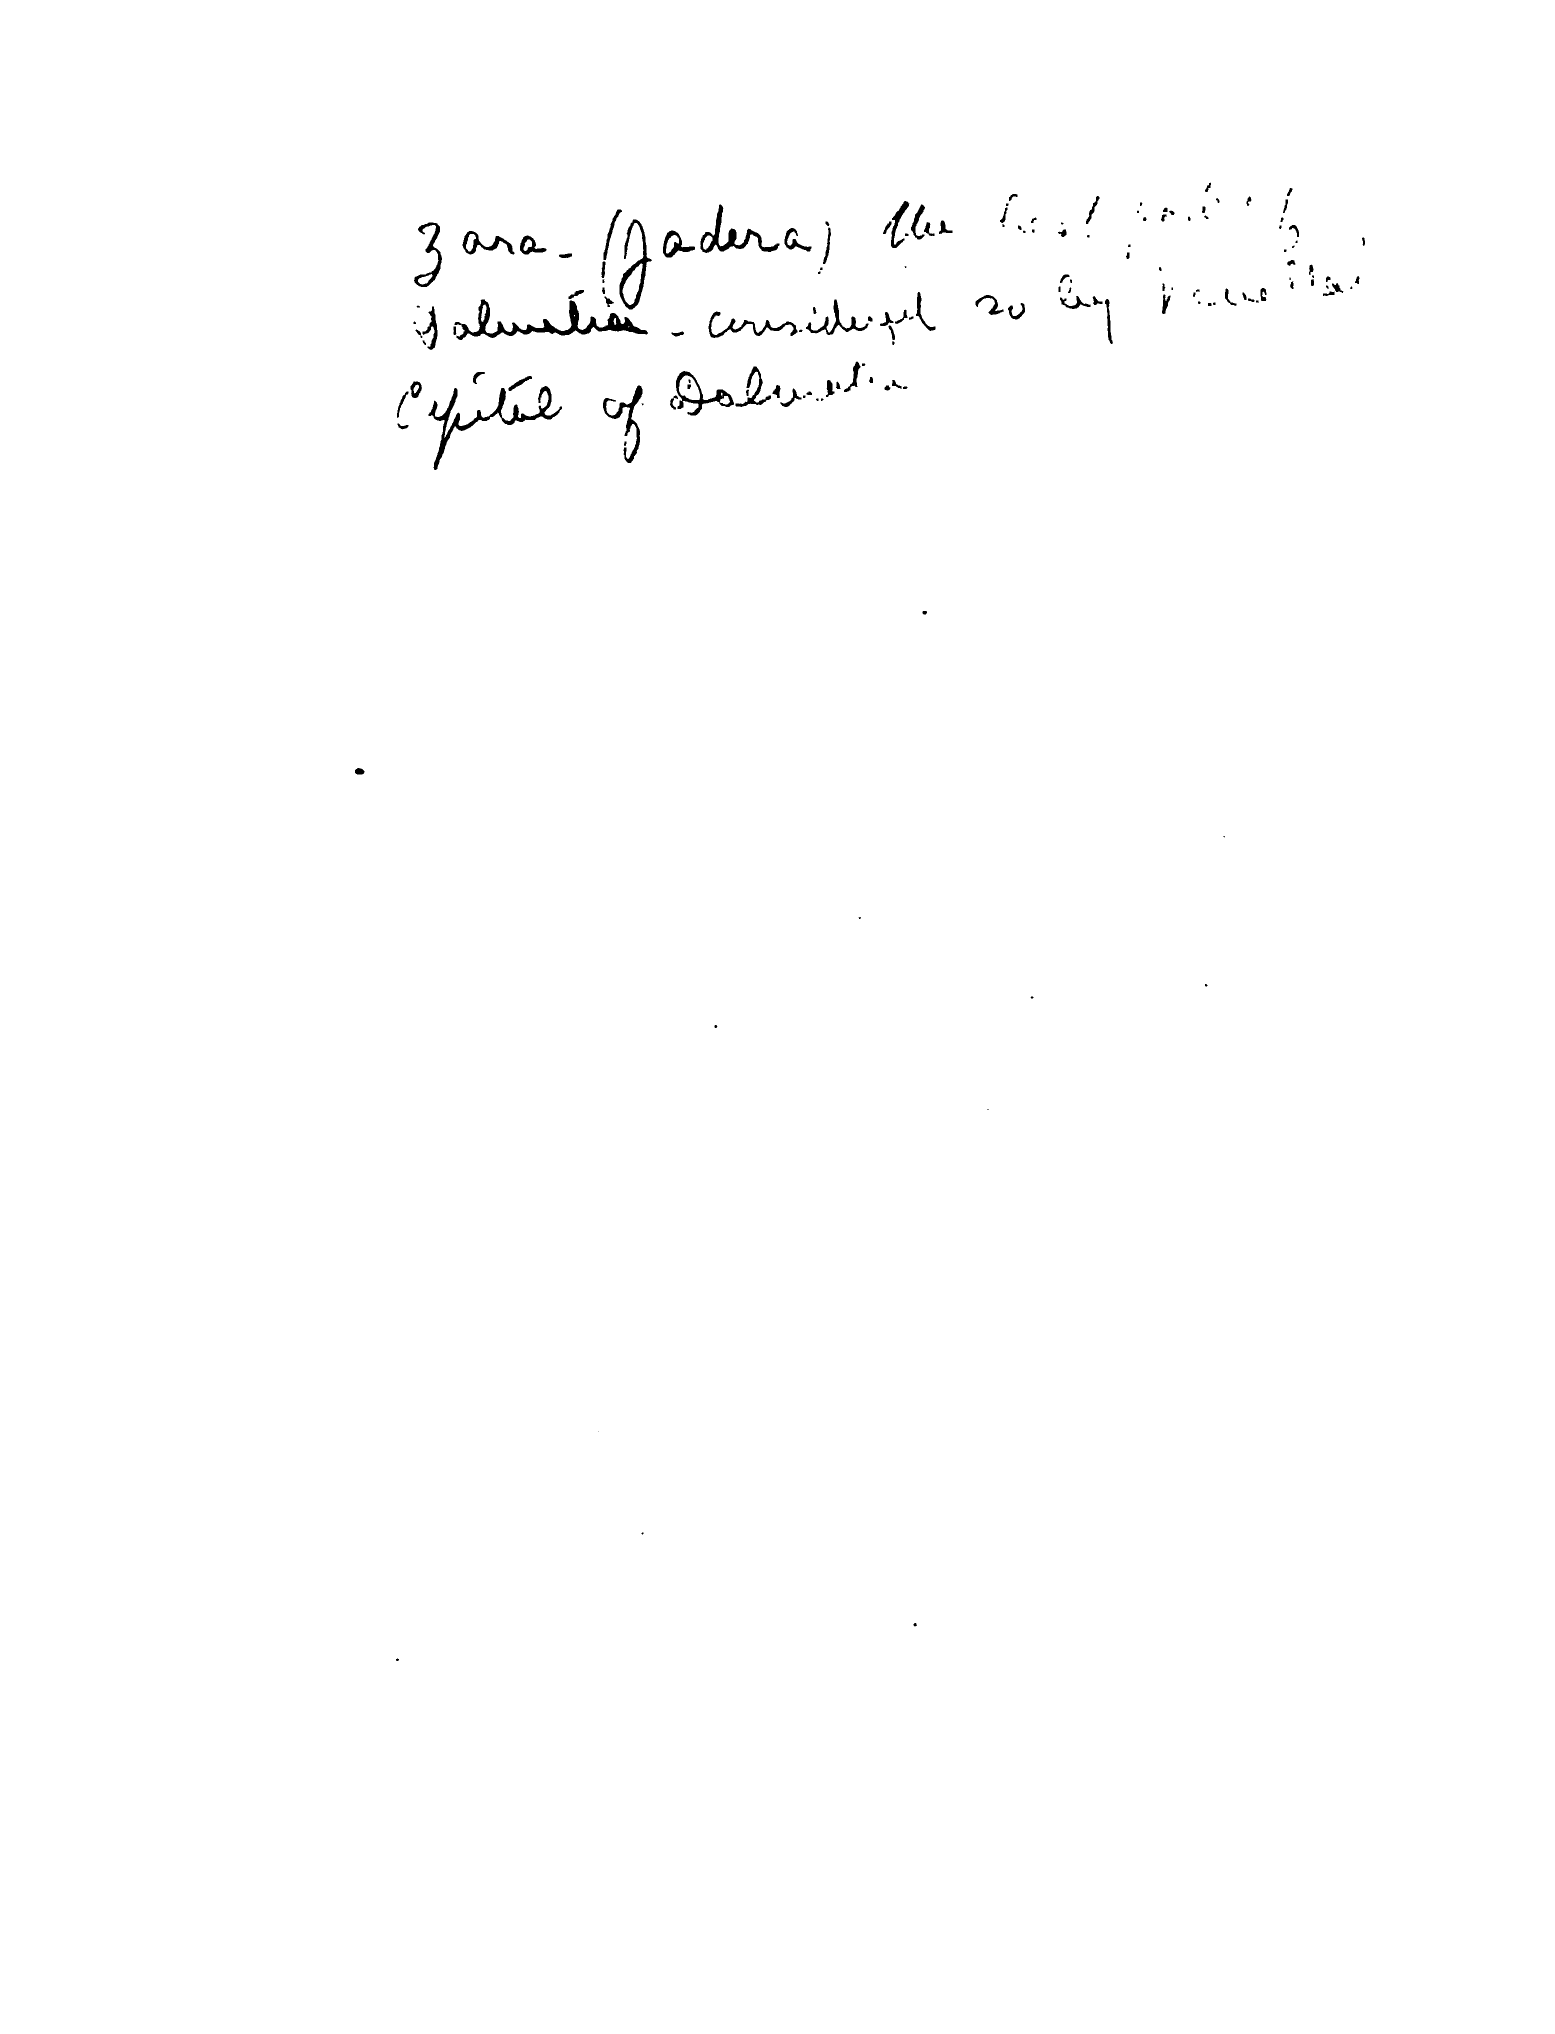 Zara - (Jadera) the
Dalmatia - considered so by Venetian
Capital of Dalmatia